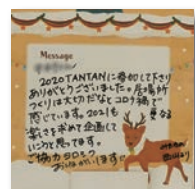 Message
2020TANTANに参加して下さり
ありがとうございました。居場所
つくりは大切だなとコロナ禍で
感じています。2021も更なる
楽しさを求めて企画して
いこうと思ってます。
ご協力ヨロシク
おねがいします